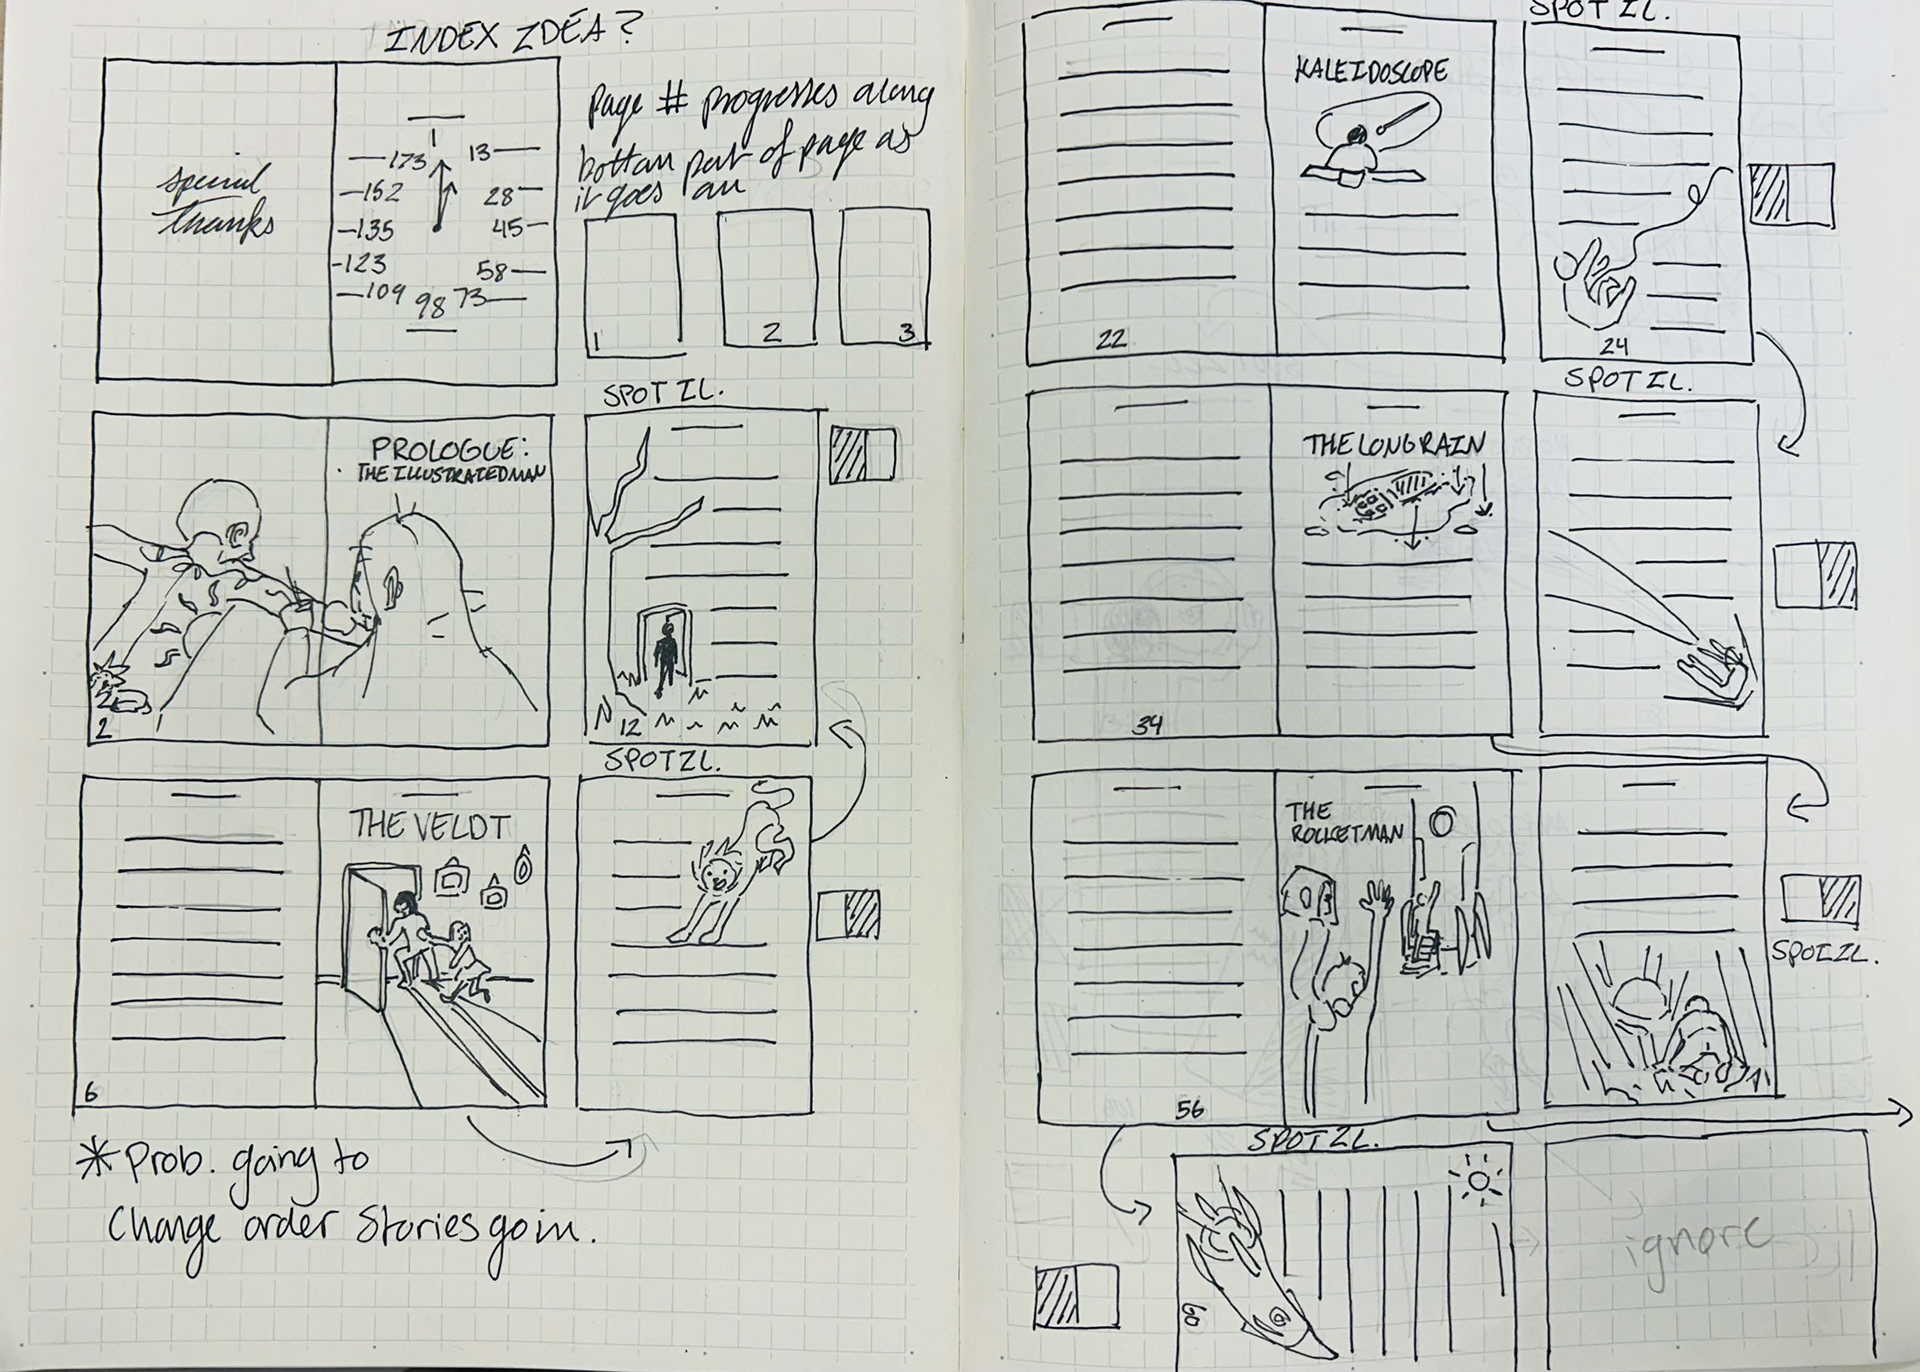 INDEX IDEA?
special
thanks
1
173 13
152 28
135 45
123 58
109 98 73
Page # progresses along
bottom part of page as
it goes on
1
2
3
PROLOGUE:
THE ILLUSTRATED MAN
2
SPOT IL.
12
THE VELDT
6
SPOT IL.
* Prob. going to
Change order Stories go in.
22
KALEIDOSCOPE
SPOT IL.
24
34
THE LONG RAIN
SPOT IL.
56
THE
ROCKETMAN
SPOT IL.
SPOT IL.
60
ignore